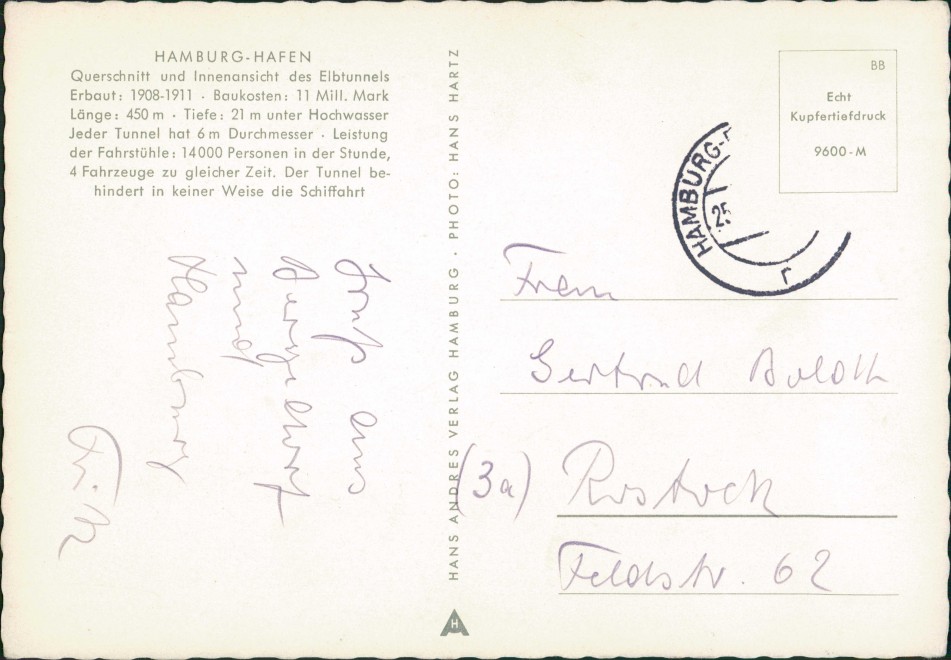 HAMBURG-HAFEN
Querschnitt und Innenansicht des Elbtunnels
Erbaut: 1908-1911 · Baukosten: 11 Mill. Mark
Länge: 450 m · Tiefe: 21 m unter Hochwasser
Jeder Tunnel hat 6 m Durchmesser · Leistung
der Fahrstühle: 14000 Personen in der Stunde,
4 Fahrzeuge zu gleicher Zeit. Der Tunnel be-
hindert in keiner Weise die Schiffahrt
Gruß aus
und
Hamburg
HANS ANDRES VERLAG HAMBURG · PHOTO: HANS HARTZ
H
BB
Echt
Kupfertiefdruck
9600-M
HAMBURG-
25
r
Frau
Gertrud Boldt
(3a) Rostock
Feldstr. 62